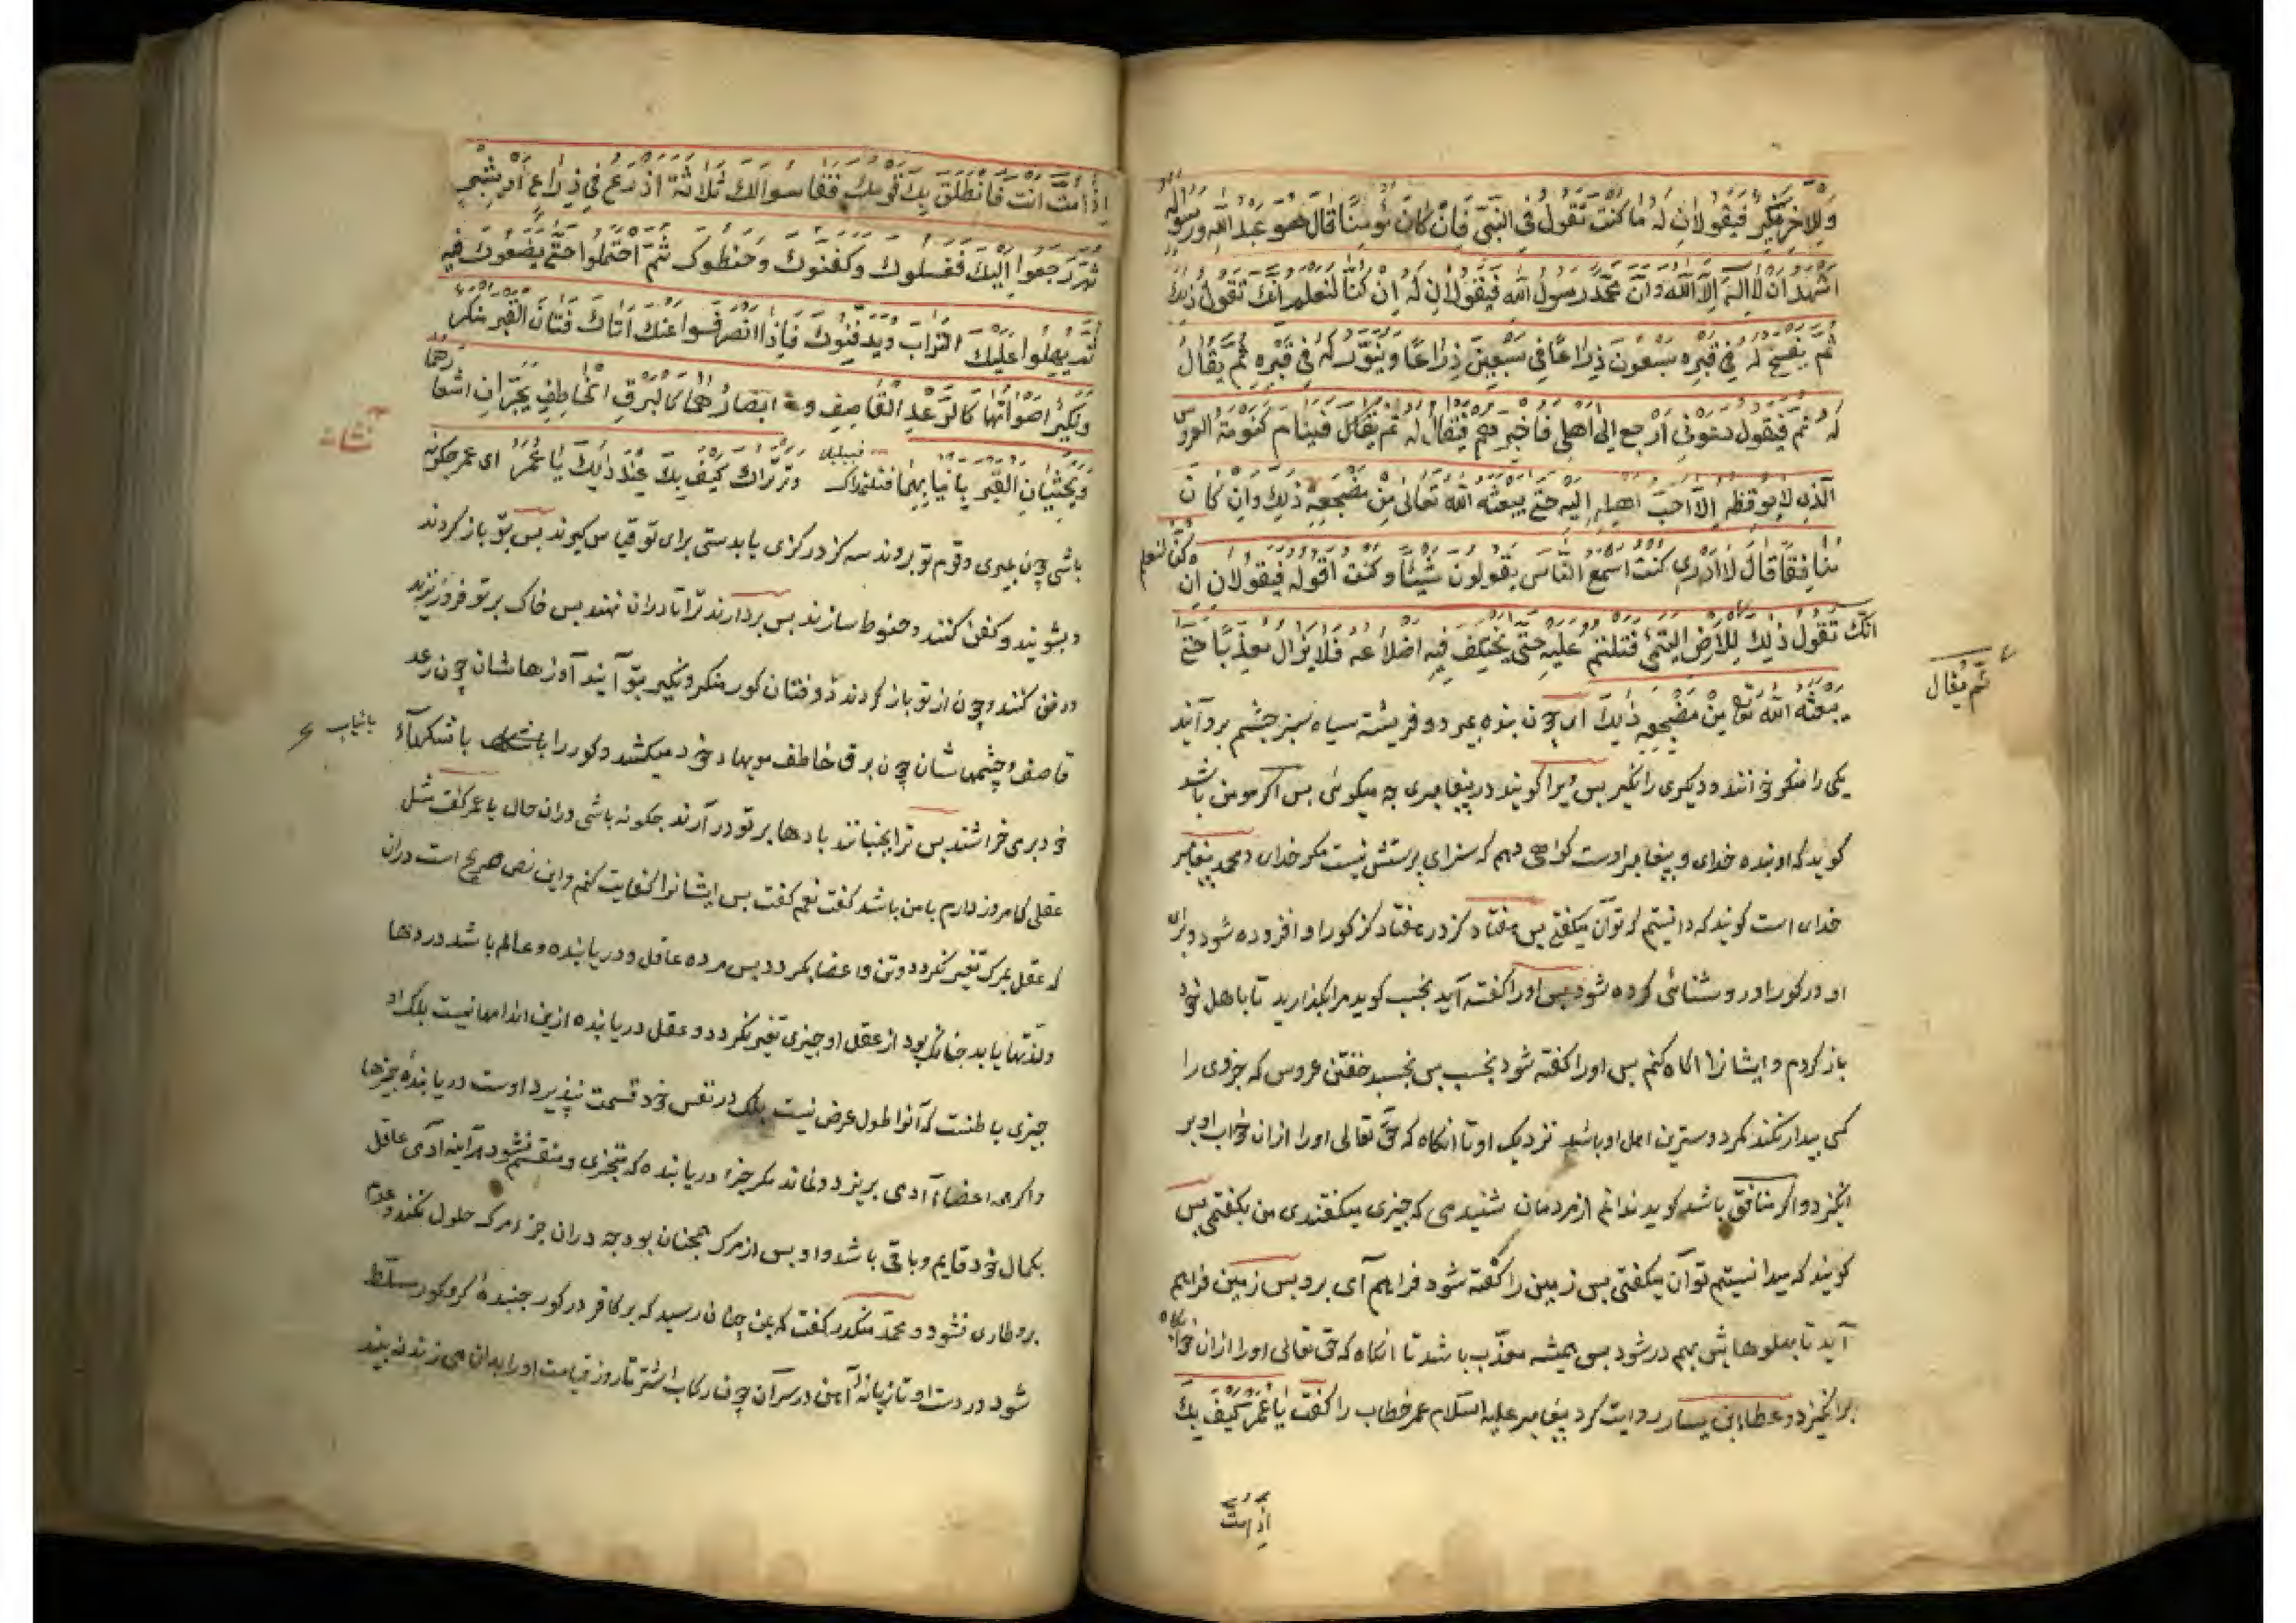 وللاخر نكير فيقولان له ما كنت تقول في النبي فان كان مؤمنا قال هو عبد الله ورسوله
اشهد ان لا اله الا الله وان محمد رسول الله فيقولان له ان كنا لنعلم انك تقول ذلك
ثم يفسح له في قبره سبعون ذراعا في سبعين ذراعا وينور له في قبره ثم يقال
له نم فيقول دعوني ارجع الى اهلي فاخبرهم فيقال له نم فينام كنومة العروس
الذي لا يوقظه الا احب اهله اليه حتى يبعثه الله تعالى من مضجعه ذلك وان كان
منافقا قال لا ادري كنت اسمع الناس يقولون شيئا وكنت اقوله فيقولان ان كنا لنعلم
انك تقول ذلك للارض التئمي فتلتئم عليه حتى يختلف فيه اضلاعه فلا يزال معذبا حتى
ثم يقال
يبعثه الله تعا من مضجعه ذلك ای چون بنده بمیرد دو فریشته سیاه سبز چشم بر وآیند
یکی را منکر خوانند و دیکری را نکیر بس ویرا کویند در پیغامبری چه میکوئی بس اکر مومن باشد
کوید که او بنده خدای و پیغامبر اوست کواهی دهم که سزای پرستش نیست مکر خدای و محمد پیغامبر
خدای است کویند که دانستیم که تو آن میکفتی بس هفتاد کز در هفتاد کز کور او افزوده شود و برای
او در کور او روشنائی کرده شود بس او را کفته آید بخسب کوید مرا بکذارید تا باهل خود
باز کردم و ایشانرا اکاه کنم بس اورا کفته شود بخسب بس بخسبد خفتن عروس که جز وی را
کسی بیدار نکند مکر دوسترین اهل او باشد نزدیک او تا انکاه که حق تعالی اورا ازان خواب او بر
انکیزد و اکر منافق باشد کوید ندانم از مردمان شنیدمی که چیزی میکفتندی من بکفتمی بس
کویند که میدانستیم تو آن میکفتی بس زمین را کفته شود فراهم آی برو بس زمین فراهم
آید تا پهلوهایش بهم در شود بس همیشه معذب باشد تا انکاه که حق تعالی اورا ازان خوابکاه
برانکیزد و عطا ابن یسار روایت کرد پیغامبر علیه السلام عمر خطاب را کفت یا عمر کیف بک
اذا مت
اذا مت انت فانطلق بك قومك فقاسوا لك ثلاثة اذرع في ذراع او شبر
ثم رجعوا اليك فغسلوك وكفنوك وحنطوك ثم احتملوا حتى يضعوك فيه
ثم يهيلوا عليك التراب ويدفنوك فاذا انصرفوا عنك اتاك فتان القبر منكر
ونكير اصواتهما كالرعد القاصف و ابصارهما كالبرق الخاطف يجران اشعارهما
ويحثيان القبر بانيابهما فتلتلاك وترتراك كيف بك عند ذلك يا عمر ای عمر چکونه
باشی چون بمیری و قوم تو بروند سه کز در کزی یا بدستی برای تو قیاس کیرند بس بتو باز کردند
و بشویند و کفن کنند و حنوط سازند بس بردارند ترا تا دران نهند بس خاک بر تو فرو ریزند
و دفن کنند و چون از تو باز کردند دو فتان کور منکر و نکیر بتو آیند آوازهاشان چون رعد
قاصف و چشمهاشان چون برق خاطف مویهاء خود میکشند و کور را باشکهاء
بانیاب
خود بر می خراشند بس ترا بجنبانند بادها بر تو درآرند چکونه باشی دران حال یا عمر کفت مثل
عقلی که امروز دارم با من باشد کفت نعم کفت بس ایشانرا کفایت کنم و این نص صریح است دران
که عقل بمرک تغیر نکردد و تن و اعضا بکردد بس مرده عاقل و دریابنده و عالم باشد و دردها
و لذتها یابد چنانک بود از عقل او چیزی تغیر نکردد و عقل دریابنده ازین اندامها نیست بلک او
چیزی باطنست که آنرا طول عرض نیست بلک در نفس خود قسمت نپذیرد اوست دریابنده چیزها
و اکر همه اعضاء آدمی بریزد و نماند مکر جزء دریابنده که متجزی و منقسم نشود هرآینه آدمی عاقل
بکمال خود قایم و باقی باشد و او بس از مرک همچنان بود چه دران جزء مرک حلول نکند و عدم
برو طاری نشود و محمد منکدر کفت که بمن چنان رسید که بر کافر در کور جنبنده کر و کور مسلط
شود در دست او تازیانه آهنی در سر آن چون رکاب اشتر تا روز قیامت اورا بدان می زند نه بیند